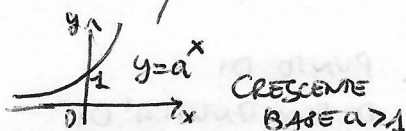 y
1
y=a^x
0
x
CRESCENTE
BASE a>1